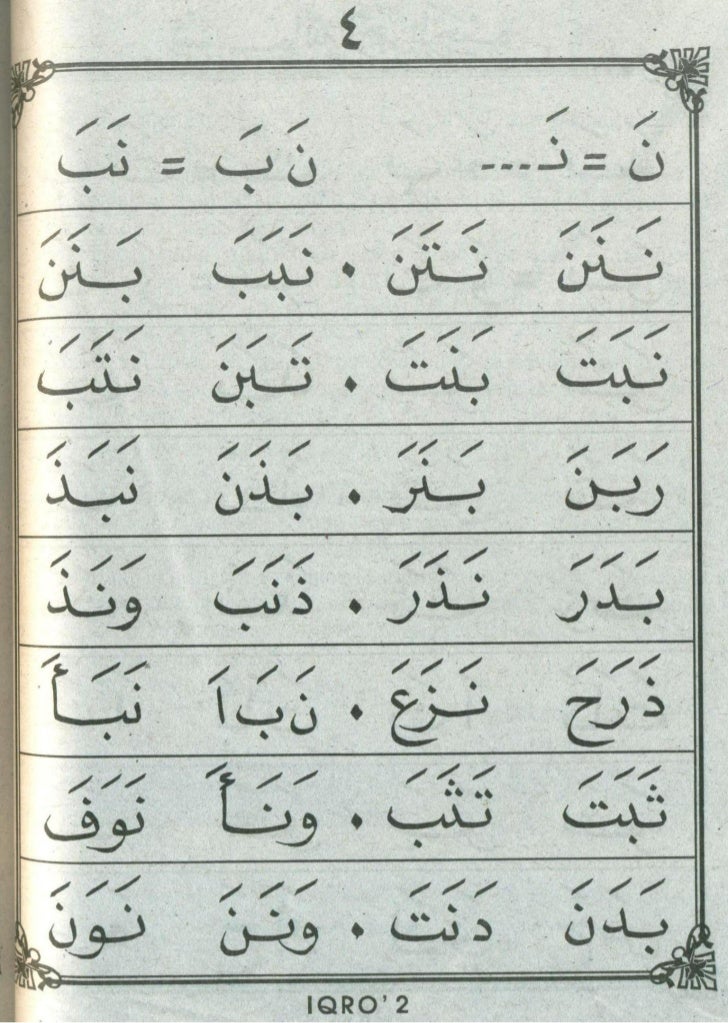 ٤
نَ = نَـ... نَ بَ = نَبَ
نَنَنَ نَتَنَ . نَبَبَ بَنَنَ
نَبَتَ بَنَتَ . تَبَنَ نَتَبَ
رَبَنَ بَنَرَ . بَذَنَ نَبَذَ
بَدَرَ نَذَرَ . ذَنَبَ وَنَذَ
ذَرَحَ نَزَعَ . نَ بَ اَ نَبَأَ
ثَبَتَ تَثَبَ . وَنَأَ نَوَفَ
بَدَنَ دَنَتَ . وَنَنَ نَوَنَ
IQRO' 2